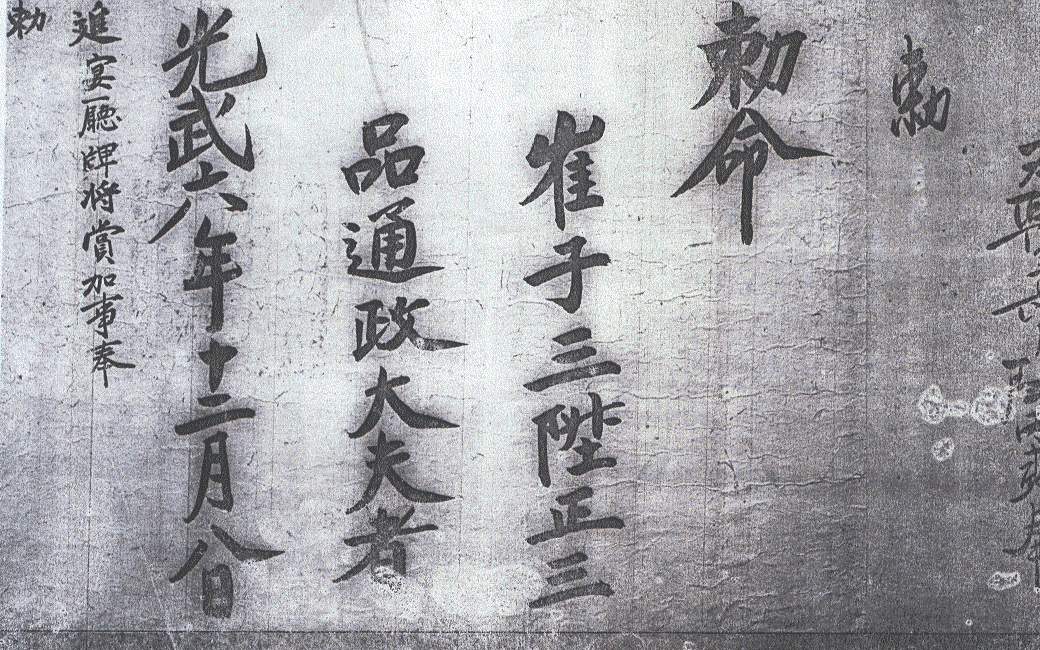 勅
勅命
崔子三陞正三
品通政大夫者
光武六年十二月八日
進宴廳牌将賞加事奉
勅